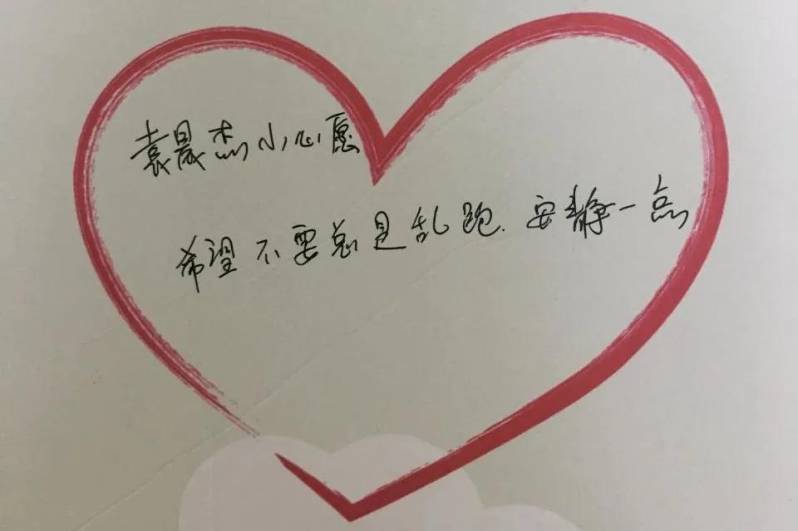 袁晟杰小心愿
希望不要总是乱跑.安静一点